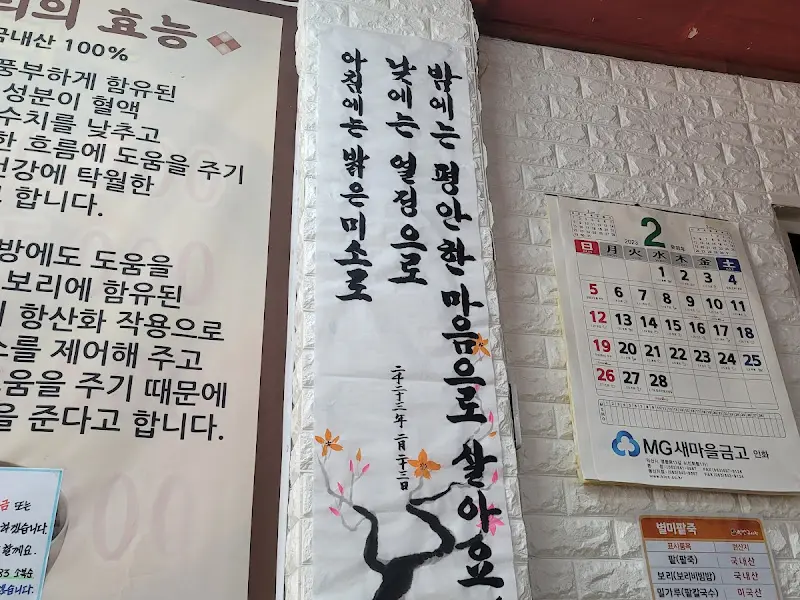 의 효능
국내산 100%
풍부하게 함유된
성분이 혈액
수치를 낮추고
한 흐름에 도움을 주기
건강에 탁월한
고 합니다.
방에도 도움을
보리에 함유된
항산화 작용으로
를 제어해 주고
도움을 주기 때문에
을 준다고 합니다.
또는
하겠습니다
할께요.
아침에는 밝은 미소로
낮에는 열정으로
밤에는 평안한 마음으로 살아요
二千二十三年 二月二十三日
2023 2
日 月 火 水 木 金 土
1 2 3 4
5 6 7 8 9 10 11
12 13 14 15 16 17 18
19 20 21 22 23 24 25
26 27 28
MG새마을금고 인화
별미팥죽
표시품목 원산지
팥(팥죽) 국내산
보리(보리비빔밥) 국내산
밀가루(팥칼국수) 미국산